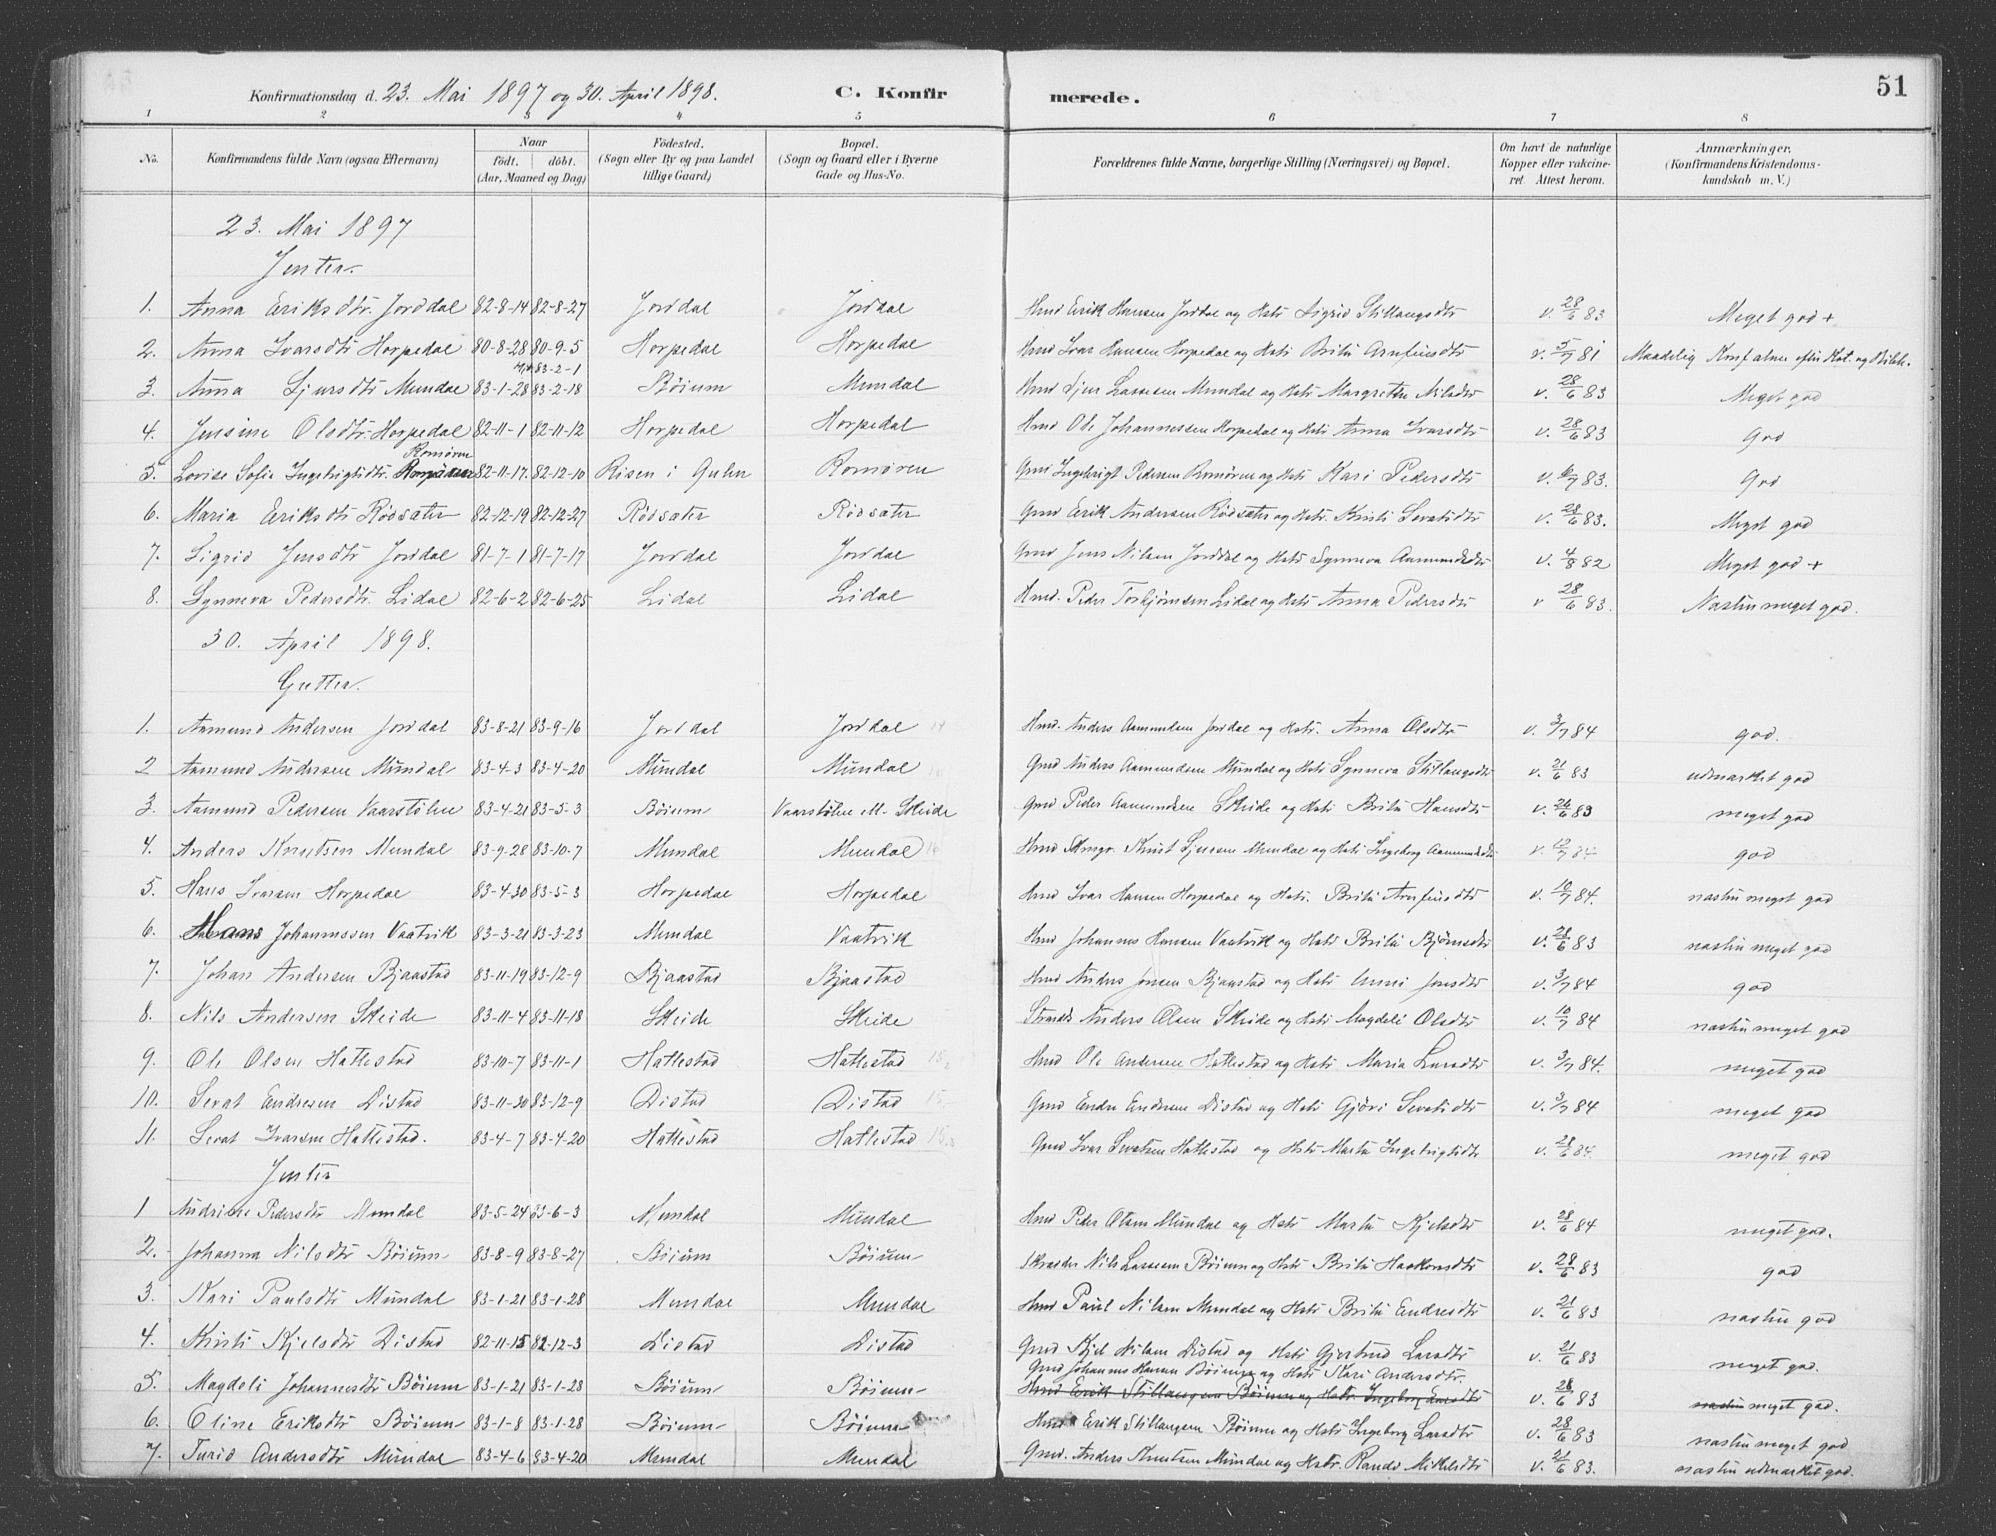 51
Konfirmationsdag d. 23. Mai 1897 og 30. April 1898. C. Konfirmerede.
1 2 3 4 5 6 7 8
No. Konfirmandens fulde Navn (ogsaa Efternavn) Naar födt. döbt. (Aar, Maaned og Dag) Födested. (Sogn eller By og paa Landet tillige Gaard) Bopæl. (Sogn og Gaard eller i Byerne Gade og Hus-No. Forældrenes fulde Navne, borgerlige Stilling (Næringsvei) og Bopæl. Om havt de naturlige Kopper eller vakcineret Attest herom. Anmærkninger. (Konfirmandens Kristendomskundskab m. V.)
23. Mai 1897
Jenter.
1. Anna Eriksdtr. Jordal 82-8-14 82-8-27 Jordal Jordal Gmd Erik Hansen Jordal og Hstr Sigrid Stillaugsdtr v. 28/6 83 Meget god +
2. Anna Ivarsdtr Horpedal 80-8-28 80-9-5 Horpedal Horpedal Hmd Ivar Hansen Horpedal og Hstr Brita Arnfinsdtr v. 5/7 81 Maadelig
3. Anna Sjursdtr Mundal 83-1-28 83-2-18 Bøium Mundal Hmd Sjur Lassesen Mundal og Hstr Margrethe Nilsdtr v. 28/6 83 Meget god
4. Jensine Olsdtr. Horpedal 82-11-1 82-11-12 Horpedal Horpedal Hmd Ole Johannessen Horpedal og Hstr Anna Ivarsdtr v. 28/6 83 God
5. Lovise Sofie Ingebrigtsdtr. Romøren 82-11-17. 82-12-10 Risen i Gulen Romøren Gmd Ingebrigt Pedersen Romøren og Hstr Kari Pedersdtr v. 6/7 83. God
6. Maria Eriksdtr Rødsæter 82-12-19 82-12-27 Rødsæter Rødsæter Gmd Erik Andersen Rødsæter og Hstr. Kristi Sevatsdtr v. 28/6 83. Meget god
7. Sigrid Jensdtr Jordal 81-7-1 81-7-17 Jordal Jordal Gmd Jens Nilsen Jordal og Hstr Synneva Aamundsdtr v. 4/8 82 Meget god +
8. Synneva Pedersdtr. Lidal 82-6-2 82-6-25 Lidal Lidal Hmd. Peder Torbjørnsen Lidal og Hstr Anna Pedersdtr v 28/6 83. Næsten meget god.
30. April 1898.
Gutter.
1. Aamund Andersen Jordal 83-8-21 83-9-16 Jordal Jordal Hmd. Anders Aamundsen Jordal og Hstr. Anna Olsdtr v. 3/7 84 god.
2 Aamund Andersen Mundal 83-4-3 83-4-20 Mundal Mundal Gmd Anders Aamundsen Mundal og Hstr Synneva Stillaugsdtr v. 21/6 83 udmærket god
3. Aamund Pedersen Vaarstølen 83-4-21 83-5-3 Bøium Vaarstølen u. Skeide Gmd Peder Aamundsen Skeide og Hstr Brita Hansdtr v. 26/6 83 meget god
4. Anders Knutsen Mundal 83-9-28 83-10-7 Mundal Mundal Hmd Knut Sjursen Mundal og Hstr Ingeborg Aamundsdtr v. 12/7 84 god
5. Hans Ivarsen Horpedal 83-4-30 83-5-3 Horpedal Horpedal Hmd Ivar Hansen Horpedal og Hstr. Brita Arnfinsdtr v. 10/7 84. næsten meget god
6. Hans Johannessen Vaatvik 83-3-21 83-3-23 Mundal Vaatvik Hmd Johannes Hansen Vaatvik og Hstr Brita Bjørnsdtr v. 28/6 83 næsten meget god
7. Johan Andersen Bjaastad 83-11-19 83-12-9 Bjaastad Bjaastad Hmd Anders Jonsen Bjaastad og Hstr Unni Jensdtr v. 3/7 84 god
8. Nils Andersen Skeide 83-11-4 83-11-18 Skeide Skeide Strands. Anders Olsen Skeide og Hstr Magdeli Olsdtr v. 10/7 84 næsten meget god
9. Ole Olsen Hatlestad 83-10-7 83-11-1 Hatlestad Hatlestad Hmd Ole Andersen Hatlestad og Hstr Maria Larsdtr v. 3/7 84. meget god
10. Sevat Endresen Distad 83-11-30 83-12-9 Distad Distad Gmd Endre Endresen Distad og Hstr Gjøri Sevatsdtr v. 3/7 84 meget god
11. Sevat Ivarsen Hatlestad. 83-4-7 83-4-20 Hatlestad Hatlestad Gmd Ivar Sevatsen Hatlestad og Hstr Marta Ingebrigtsdtr v. 28/6 84. meget god
Jenter
1 Andrine Pedersdtr Mundal 83-5-24 83-6-3 Mundal Mundal Hmd Peder Olsen Mundal og Hstr Marta Kjelsdtr v. 28/6 84 meget god.
2. Johanna Nilsdtr Bøium 83-8-9 83-8-27 Bøium Bøium Skrædder Nils Lassesen Bøium og Hstr Brita Haakonsdtr v. 28/6 83 god
3. Kari Paulsdtr Mundal 83-1-21 83-1-28 Mundal Mundal Hmd Paul Nilsen Mundal og Hstr Brita Endresdtr v. 21/6 83 næsten god
4. Kristi Kjelsdtr Distad 82-11-15 82-12-3 Distad Distad Gmd Kjel Nilsen Distad og Hstr Gjertrud Larsdtr v. 21/6 83 meget god.
5. Magdeli Johannesdtr Bøium 83-1-21 83-1-28 Bøium Bøium Gmd Johannes Hansen Bøium og Hstr Kari Andersdtr. Hmd Erik Stillaugsen Bøium og Hstr Ingeborg Larsdtr v. 28/6 83 næsten meget god.
6. Oline Eriksdtr Bøium 83-1-8 83-1-28 Bøium Bøium Hmd Erik Stillaugsen Bøium og Hstr Ingeborg Larsdtr v. 28/6 83 næsten meget god
7. Turid Andersdtr Mundal 83-4-6 83-4-20 Mundal Mundal Gmd. Anders Knutsen Mundal og Hstr. Randi Mikelsdtr v. 21/6 83. næsten udmærket god.